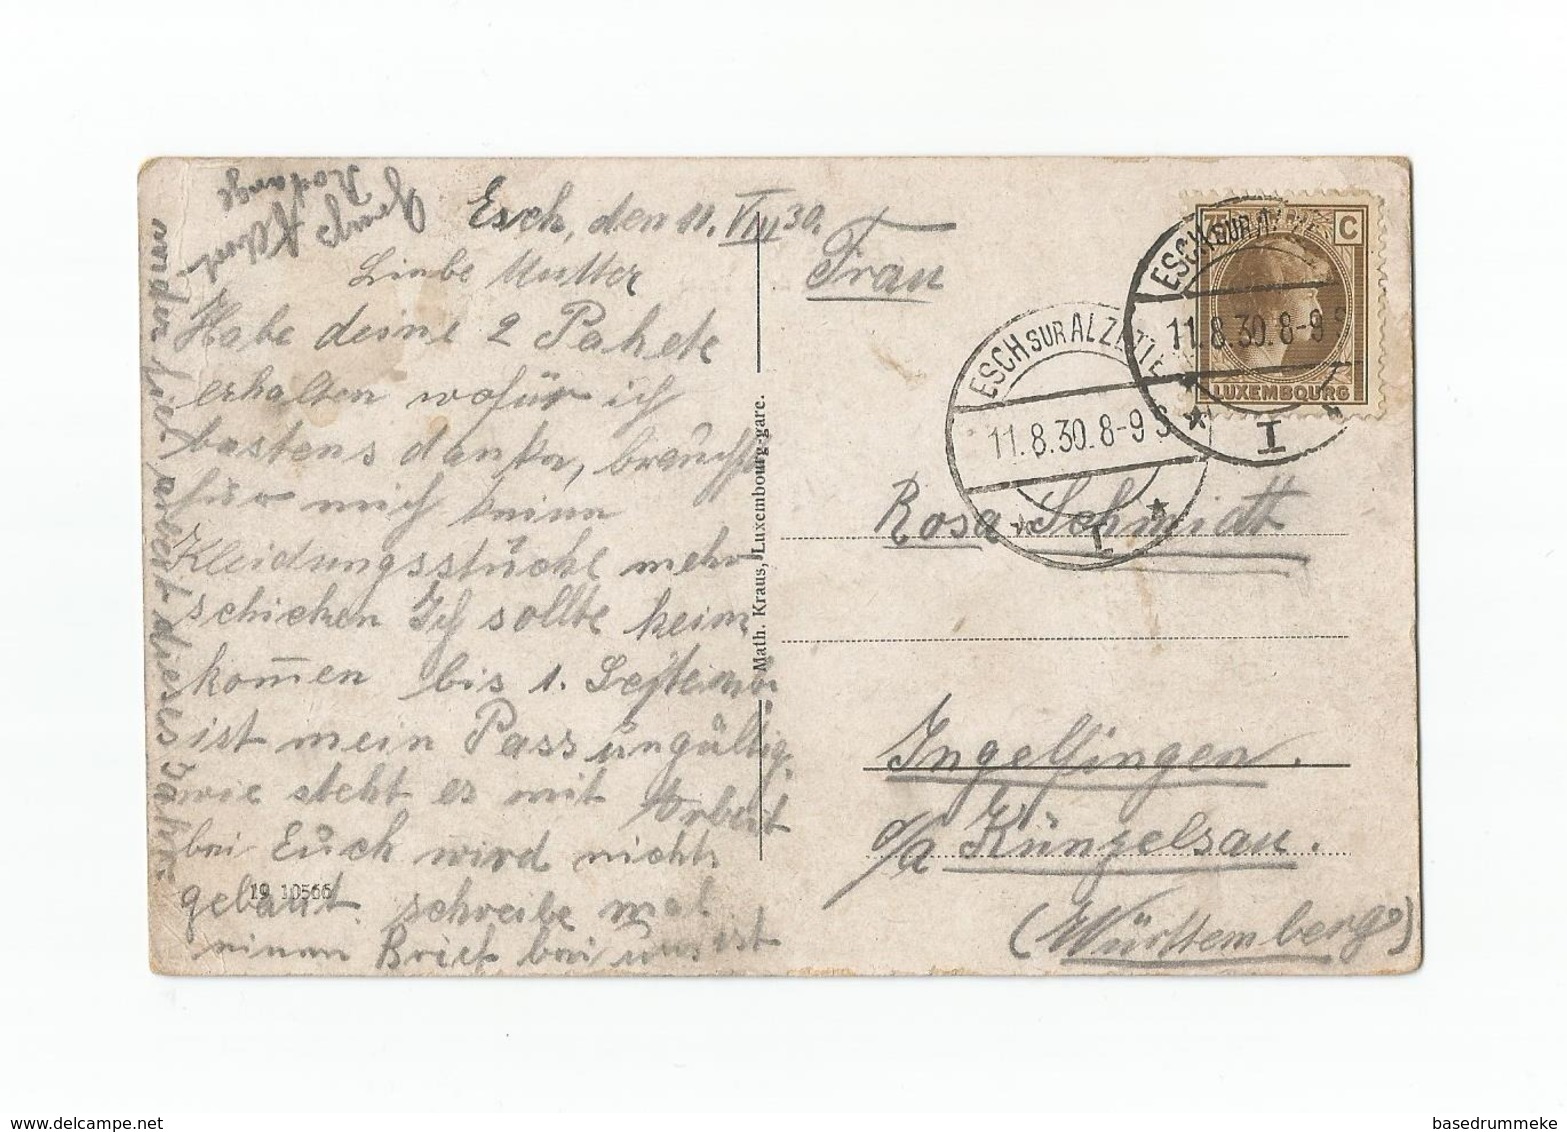 Esch, den 11. VIII 30.
Liebe Mutter
Habe deine 2 Pakete
erhalten wofür ich
bestens danke, brauchst
für mich keine
Kleidungsstücke mehr
schicken Ich sollte heim
kommen bis 1. September
ist mein Pass ungültig.
wie steht es mit Arbeit
bei Euch wird nichts
gebaut schreibe mal
einen Brief bei uns ist
arbeit dieses Jahr.
Gruß
19 10566
Math. Kraus, Luxembourg-gare.
Frau
Rosa Schmidt
Ingelfingen.
o/a Küngelsau.
(Württemberg)
75 C
LUXEMBOURG
ESCH SUR ALZETTE
11.8.30. 8-9 S
I
ESCH SUR ALZETTE
11.8.30. 8-9 S
I
www.delcampe.net
basedrummeke